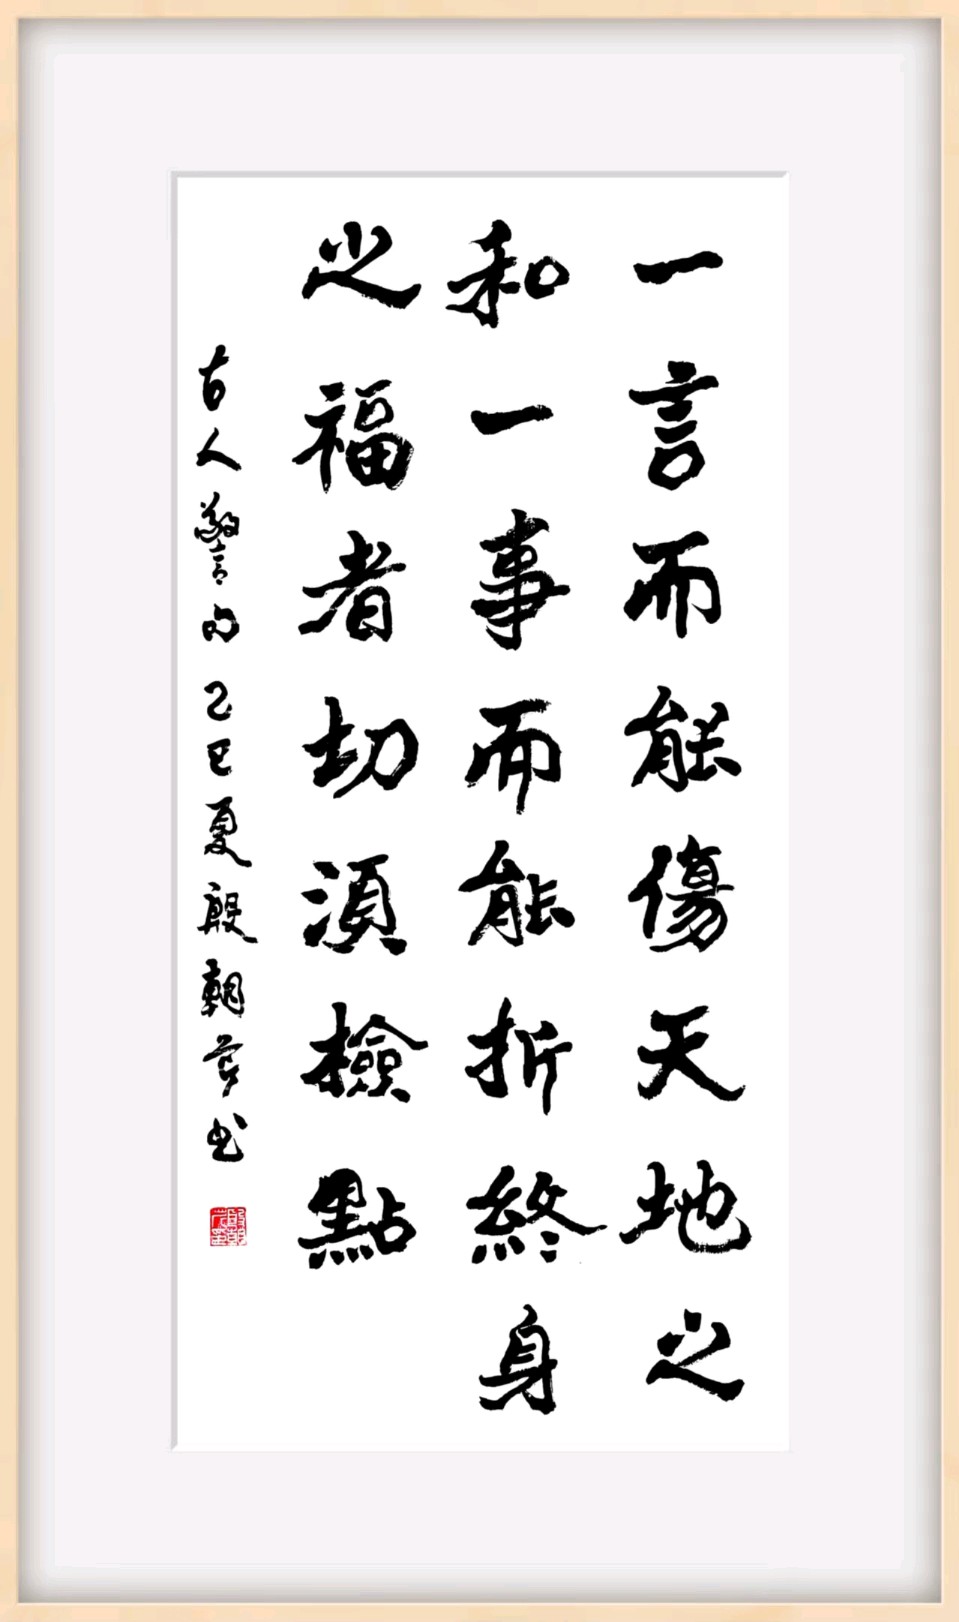 一言而能傷天地之
和一事而能折終身
之福者切須檢點
古人警句乙巳夏殷朝芹书